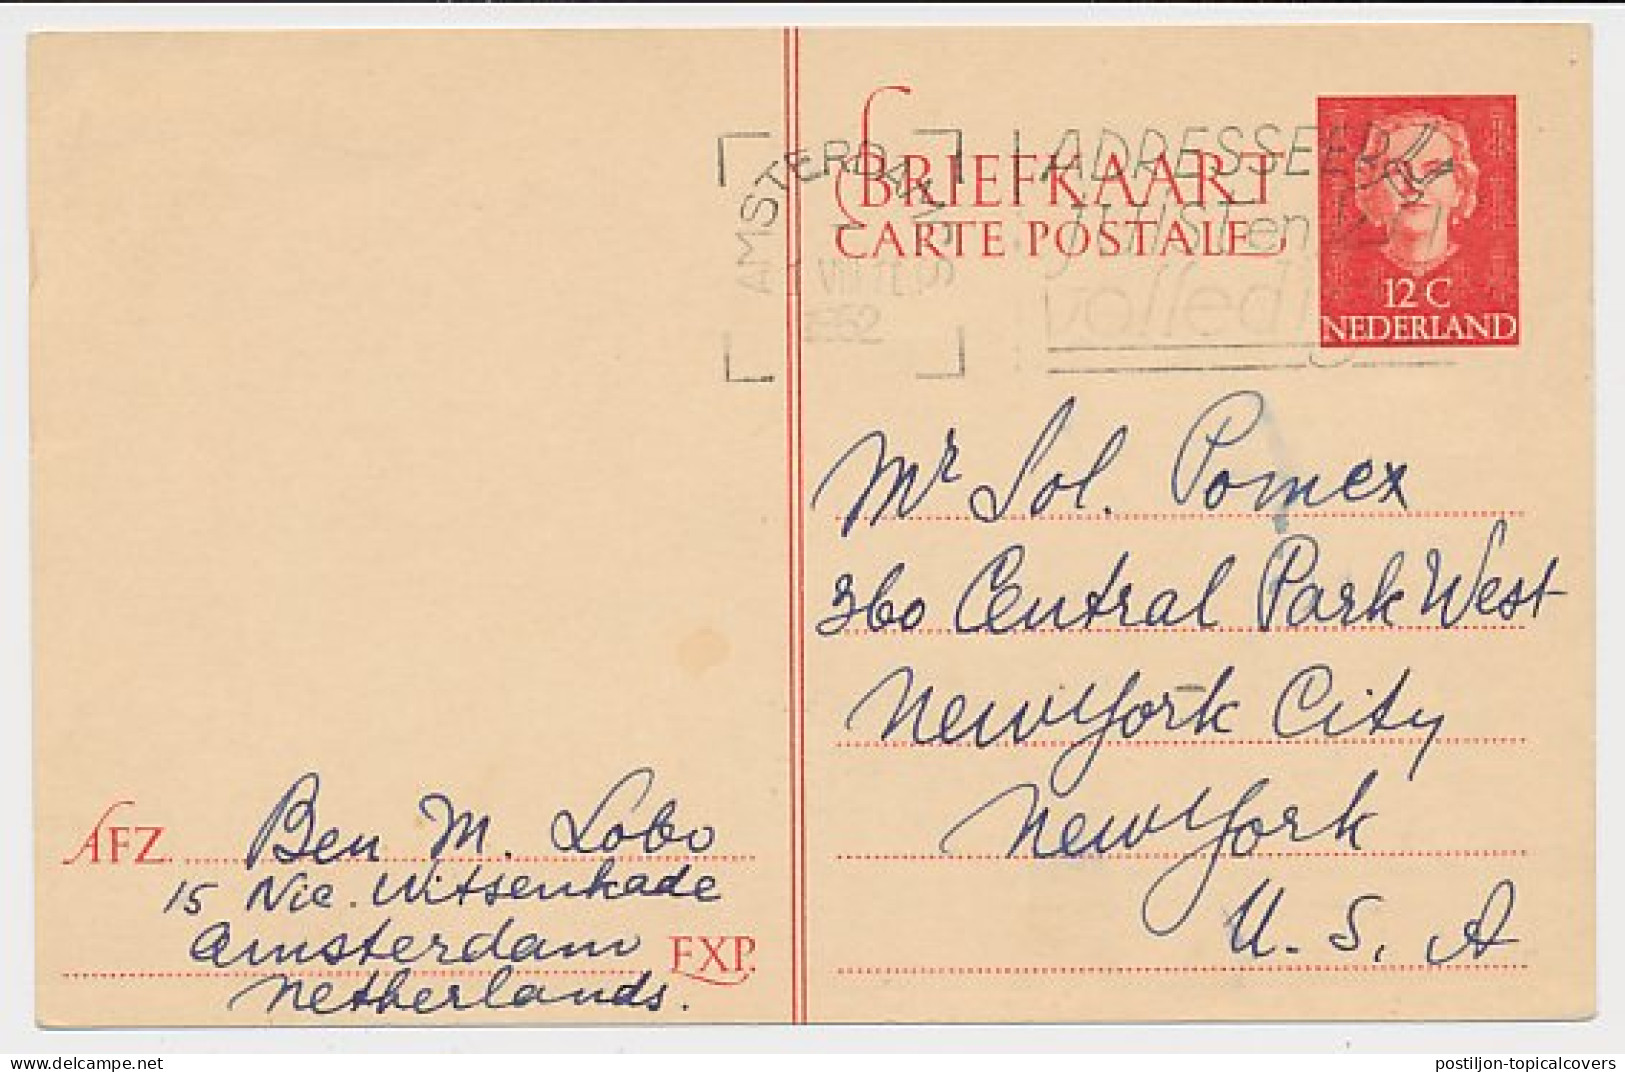 BRIEFKAART
CARTE POSTALE
AMSTERDAM
1952
ADRESSEER
JUIST en
volledig
12 C
NEDERLAND
Mr Sol. Pomex
360 Central Park West
New York City
New York
U. S. A
AFZ. Ben M. Lobo
15 Nic. Witsenkade
Amsterdam
EXP.
Netherlands.
postiljon-topicalcovers